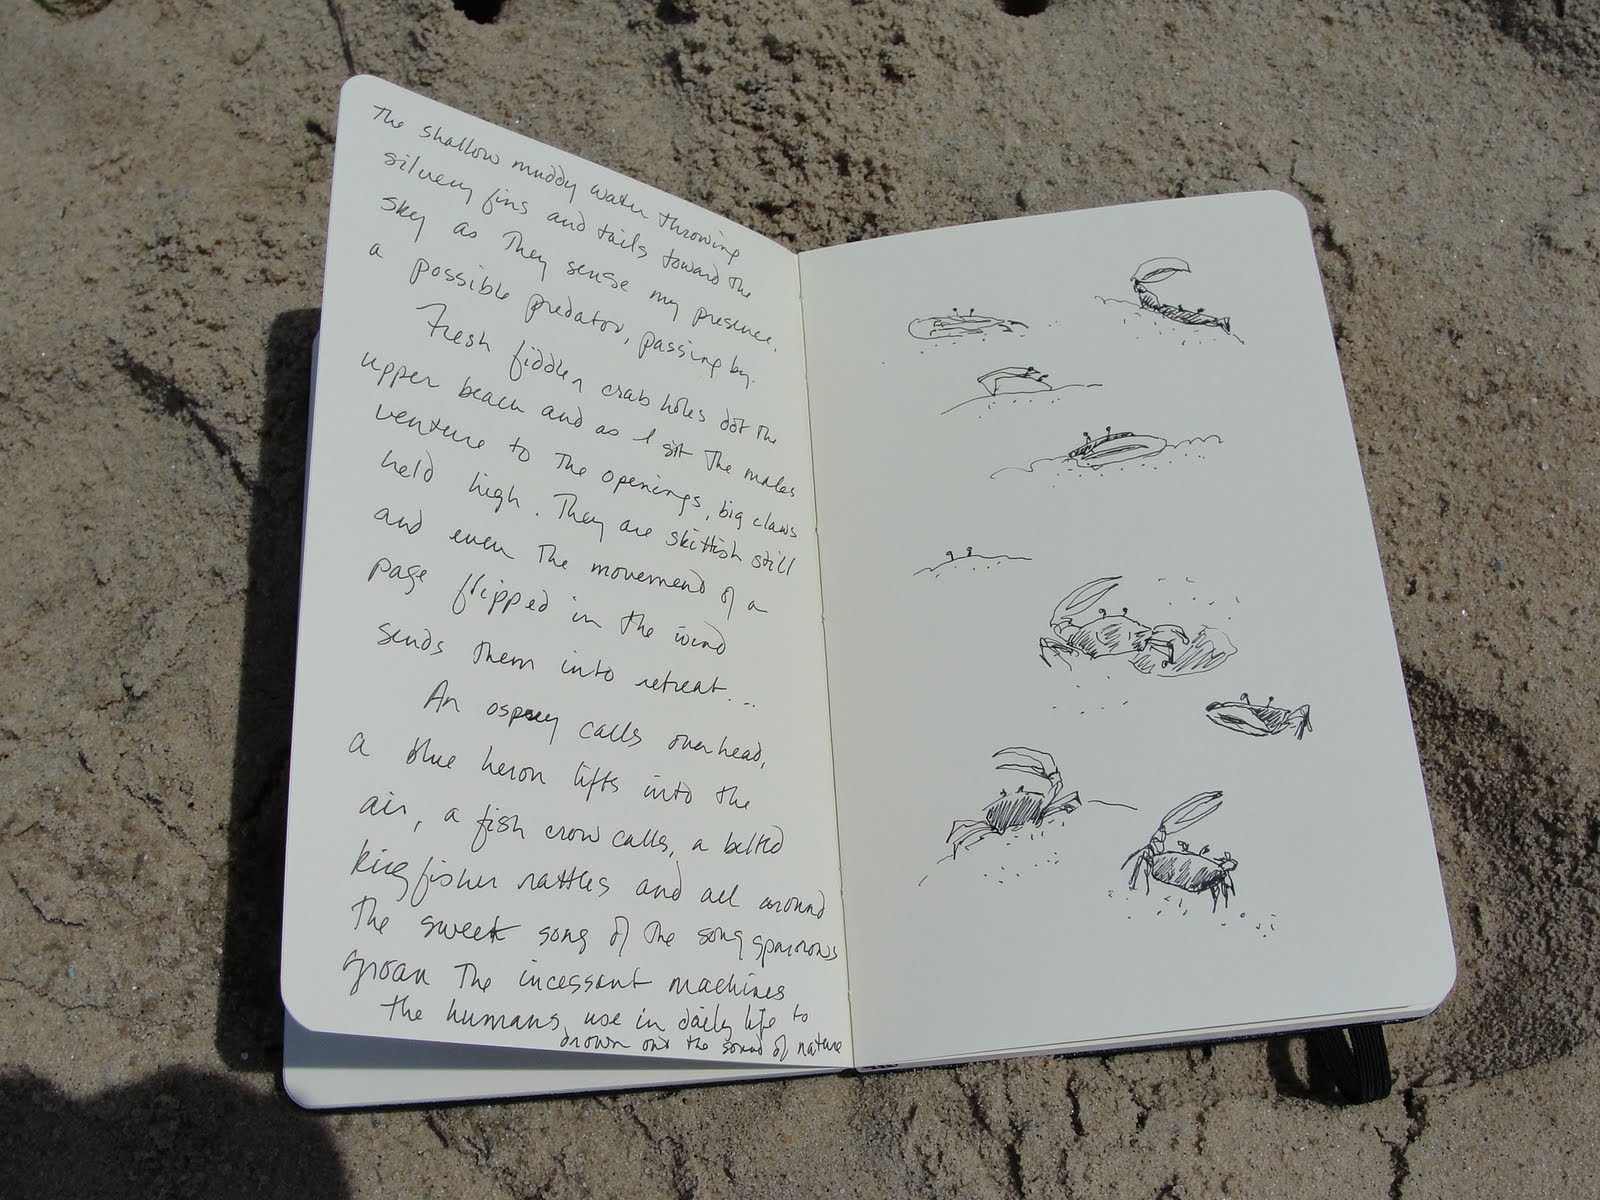 The shallow muddy water throwing
silvery fins and tails toward the
sky as They sense my presence.
a possible predator, passing by.
Fresh fiddler crab holes dot the
upper beach and as I sit The males
venture to The openings, big claws
held high. They are skittish still
and even The movement of a
page flipped in the wind
sends them into retreat...
An osprey calls overhead,
a blue heron lifts into the
air, a fish crow calls, a belted
kingfisher rattles and all around
The sweet song of The song sparrows
groan The incessant machines
the humans use in daily life to
drown out the sound of nature